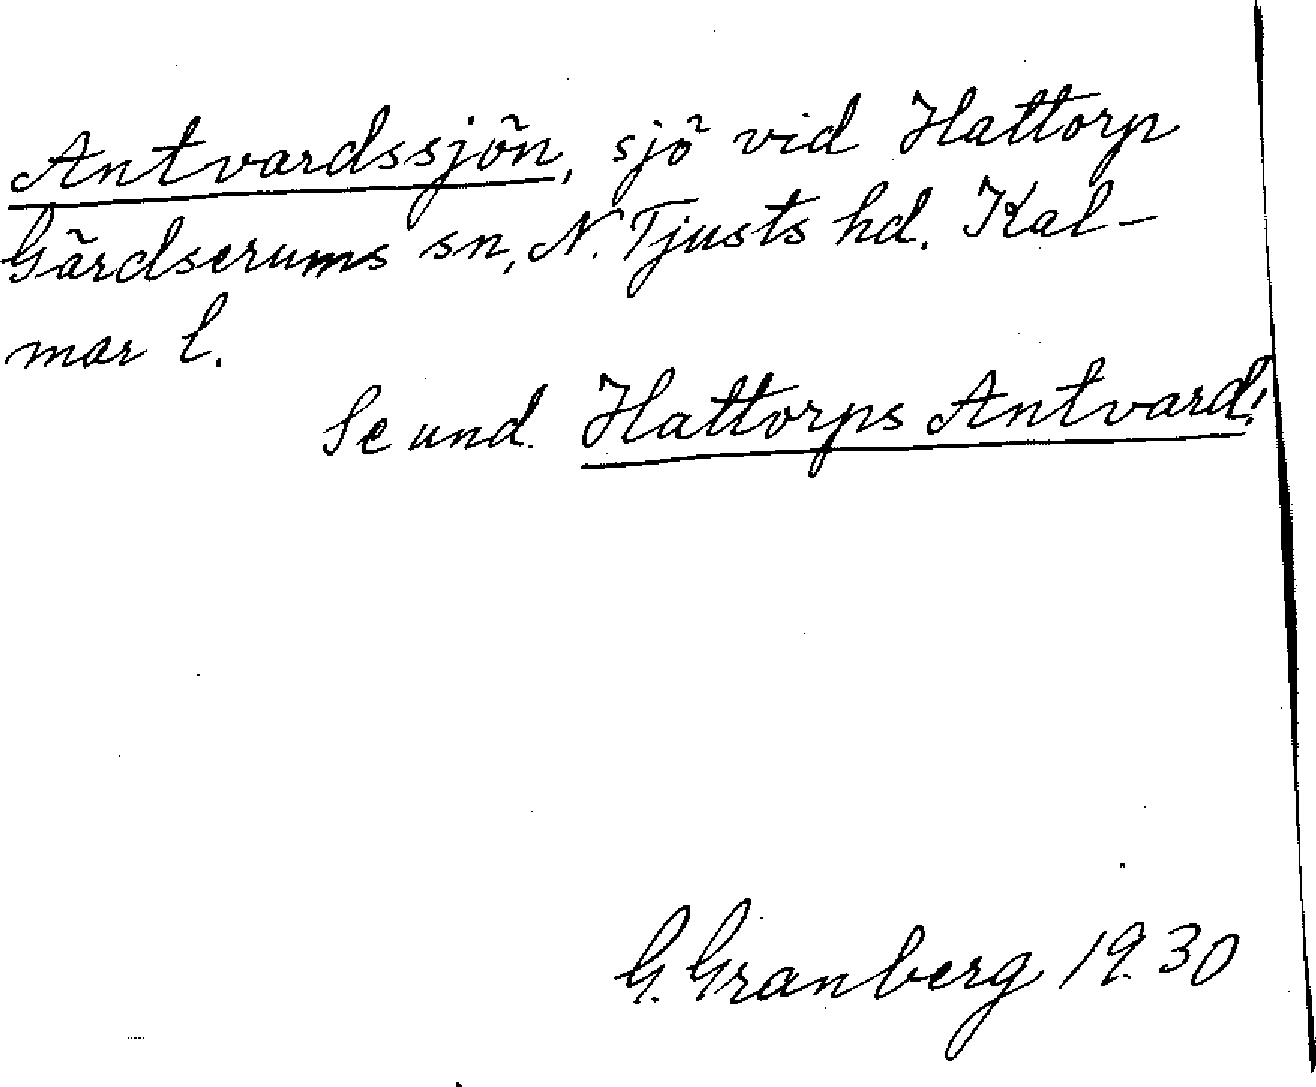 Antvardssjön, sjö vid Hattorp
Gärdserums sn, N. Tjusts hd. Kal-
mar l.
Se und. Hattorps Antvard!
G. Granberg 1930